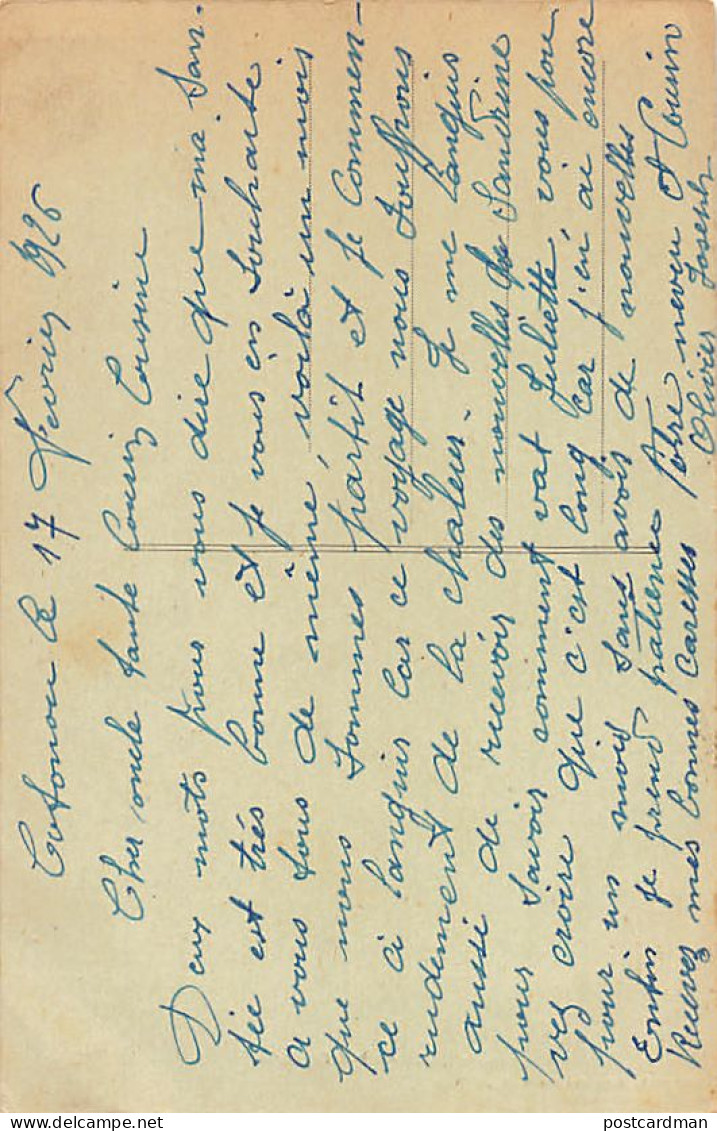 Cotonou le 17 Fevrier 1926
Cher oncle tante Cousin Cousine
Deux mots pour vous dire que ma San-
tée est très bonne et je vous en Souhaite
a vous tous de même, voilà un mois
que nous sommes partit et je commen-
ce a languir car ce voyage nous souffrons
rudement de la chaleur. Je me languis
aussi de recevoir des nouvelles de Sandrine
pour Savoir comment vat Juliette, vous pou
vez croire que c'est long car j'en ai encore
pour un mois sans avoir de nouvelles
Enfin je prend patience Votre neveu et Cousin
Recevez mes bonnes Caresses Olivier Joseph
postcardman